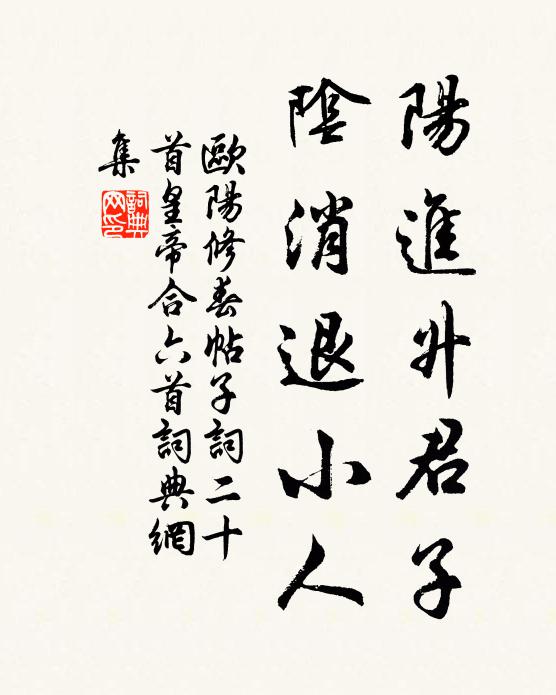 陽進升君子
陰消退小人
歐陽修春帖子詞二十
首皇帝合六首詞典網
集
詞典
网印